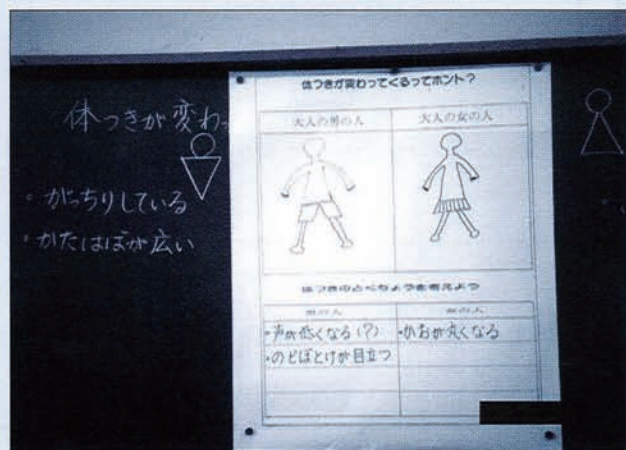 体つきが変わっ
・がっちりしている
・かたはばが広い
体つきが変わってくるってホント?
大人の男の人
大人の女の人
体つきのとくちょうを考えよう
男の人
女の人
・声が低くなる(?)
・のどぼとけが目立つ
・かおが丸くなる